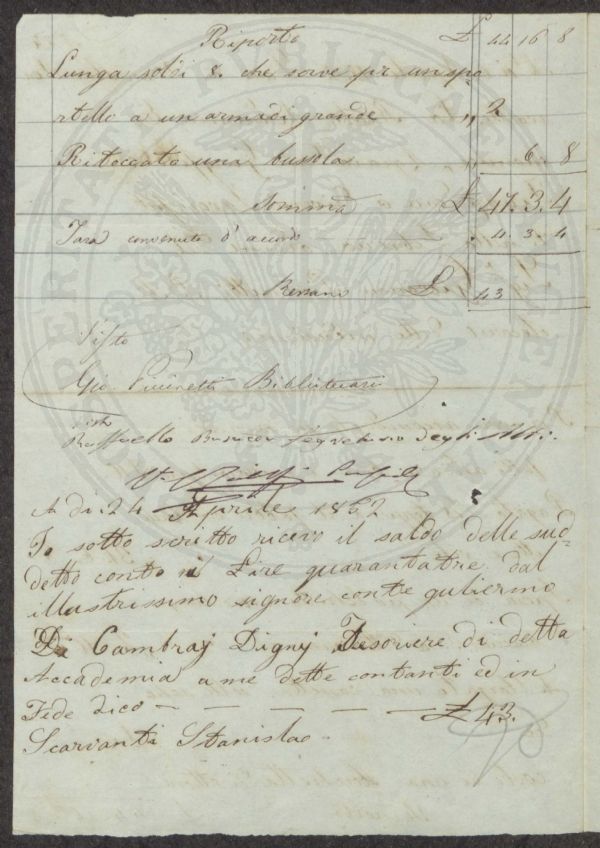 Riporto £ 44 16 8
Lunga soldi 8. che serve pr un spo=
rtello a un armadi grande " 2
Ritoccato una bussola " 6. 8
Somma £ 47. 3. 4
Tara convenuta d'accordo 4. 3. 4
Restano £ 43
Visto
Gio. Bibliotecario
Visto
Raffaello Segretario degli Atti.
A di. 24 Aprile 1852
Io sotto scritto ricevo il saldo delle sud=
detto conto Lire quarantatre dal
illustrissimo signore conte guliermo
Di Cambraj Digny Tesoriere di detta
Accademia a me dette contanti ed in
Fede dico — — — — — £ 43.
Scarvanti Stanislao.